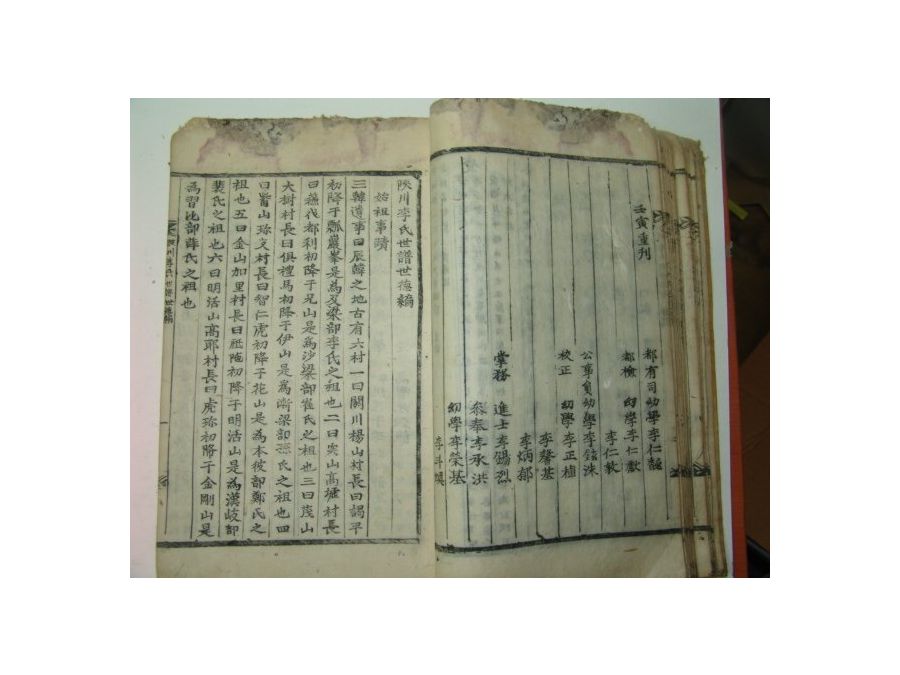 壬寅重刊
都有司幼學李仁
都檢 幼學李仁獻
李仁敎
公事員幼學李銓洙
校正 幼學李正植
李馨基
李炳郁
掌務 進士李錫烈
叅奉李承洪
幼學李榮基
李斗
陜川李氏世譜世德編
始祖事蹟
三韓遺事曰辰韓之地古有六村一曰閼川楊山村長曰謁平
初降于瓢巖峯是為及梁部李氏之祖也二曰突山高墟村長
曰蘇伐都利初降于兄山是爲沙梁部崔氏之祖也三曰茂山
大樹村長曰俱禮馬初降于伊山是爲漸梁部孫氏之祖也四
曰觜山珍支村長曰智伯虎初降于花山是為本彼部鄭氏之
祖也五曰金山加里村長曰祗陁初降于明活山是為漢岐部
裴氏之祖也六曰明活山高耶村長曰虎珍初降于金剛山是
為習比部薛氏之祖也
川李氏世譜世德編